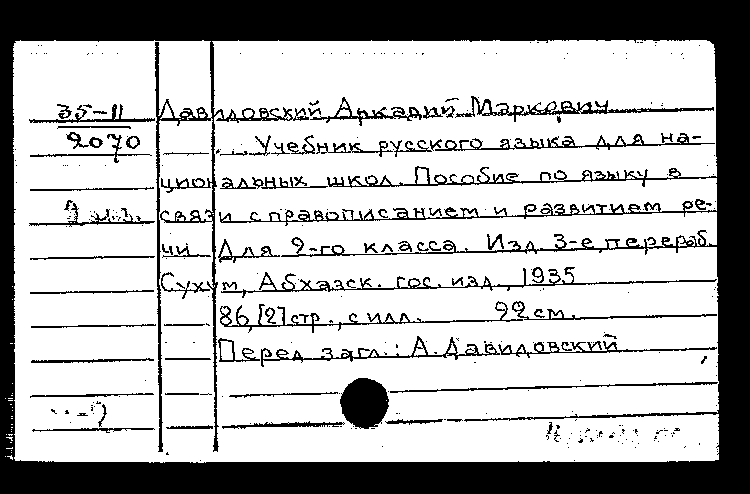 35-11 Давидовский, Аркадий Маркович
2070 ... Учебник русского языка для на-
циональных школ. Пособие по языку в
2 экз. связи с правописанием и развитием ре-
чи Для 2-го класса. Изд. 3-е, перераб.
Сухум, Абхазск. гос. изд., 1935
86, [2] стр., с илл. 22 см.
Перед загл.: А. Давидовский